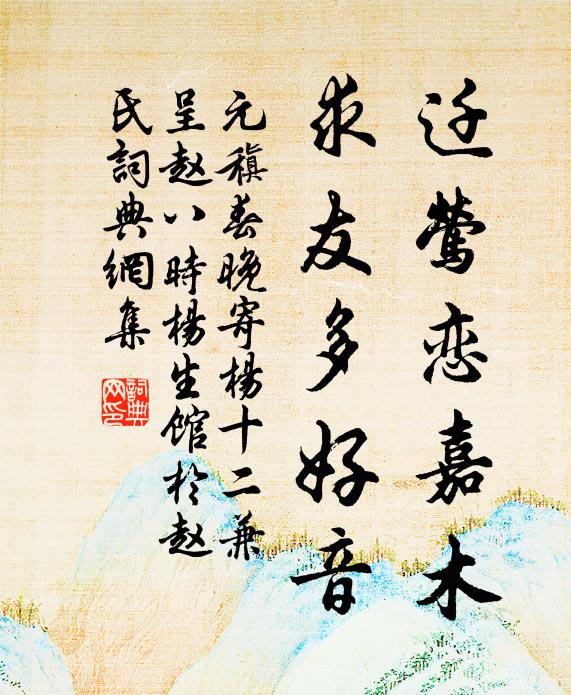 迁莺恋嘉木
求友多好音
元稹春晚寄杨十二兼
呈赵八時杨生馆於赵
氏詞典網集
詞典
网印